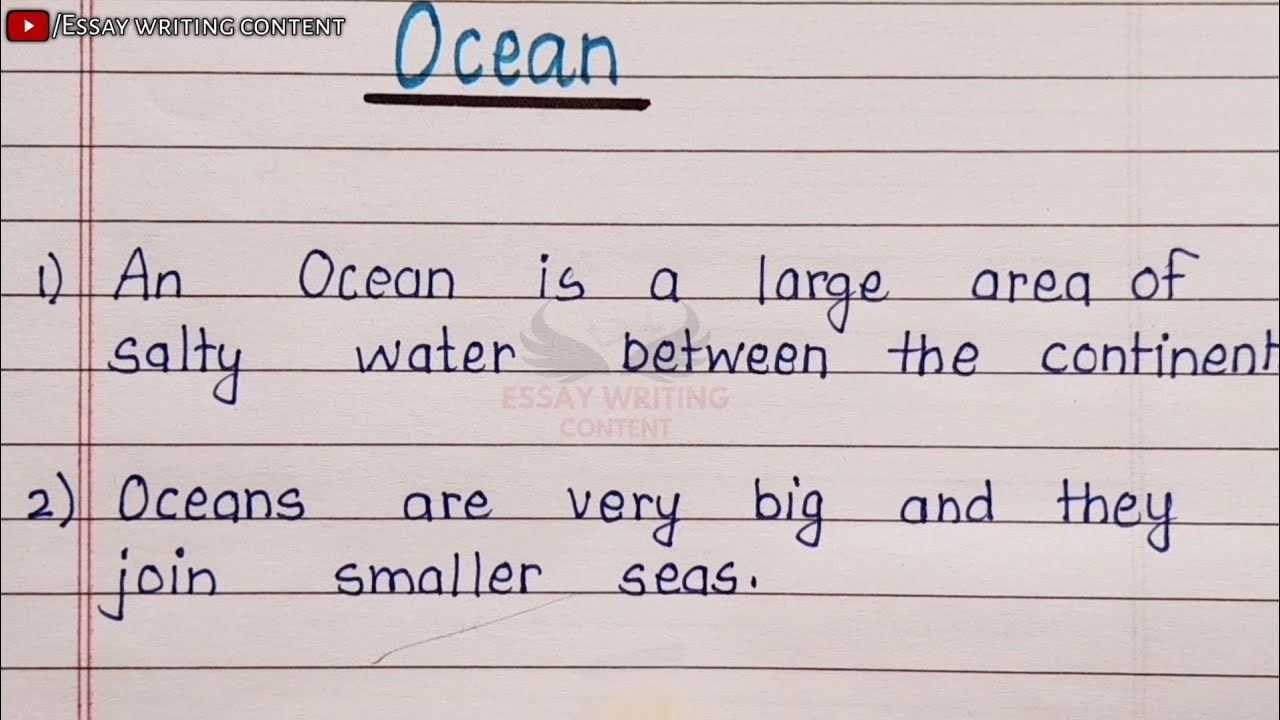 /ESSAY WRITING CONTENT
Ocean
1) An Ocean is a large area of
salty water between the continent
ESSAY WRITING
CONTENT
2) Oceans are very big and they
join smaller seas.